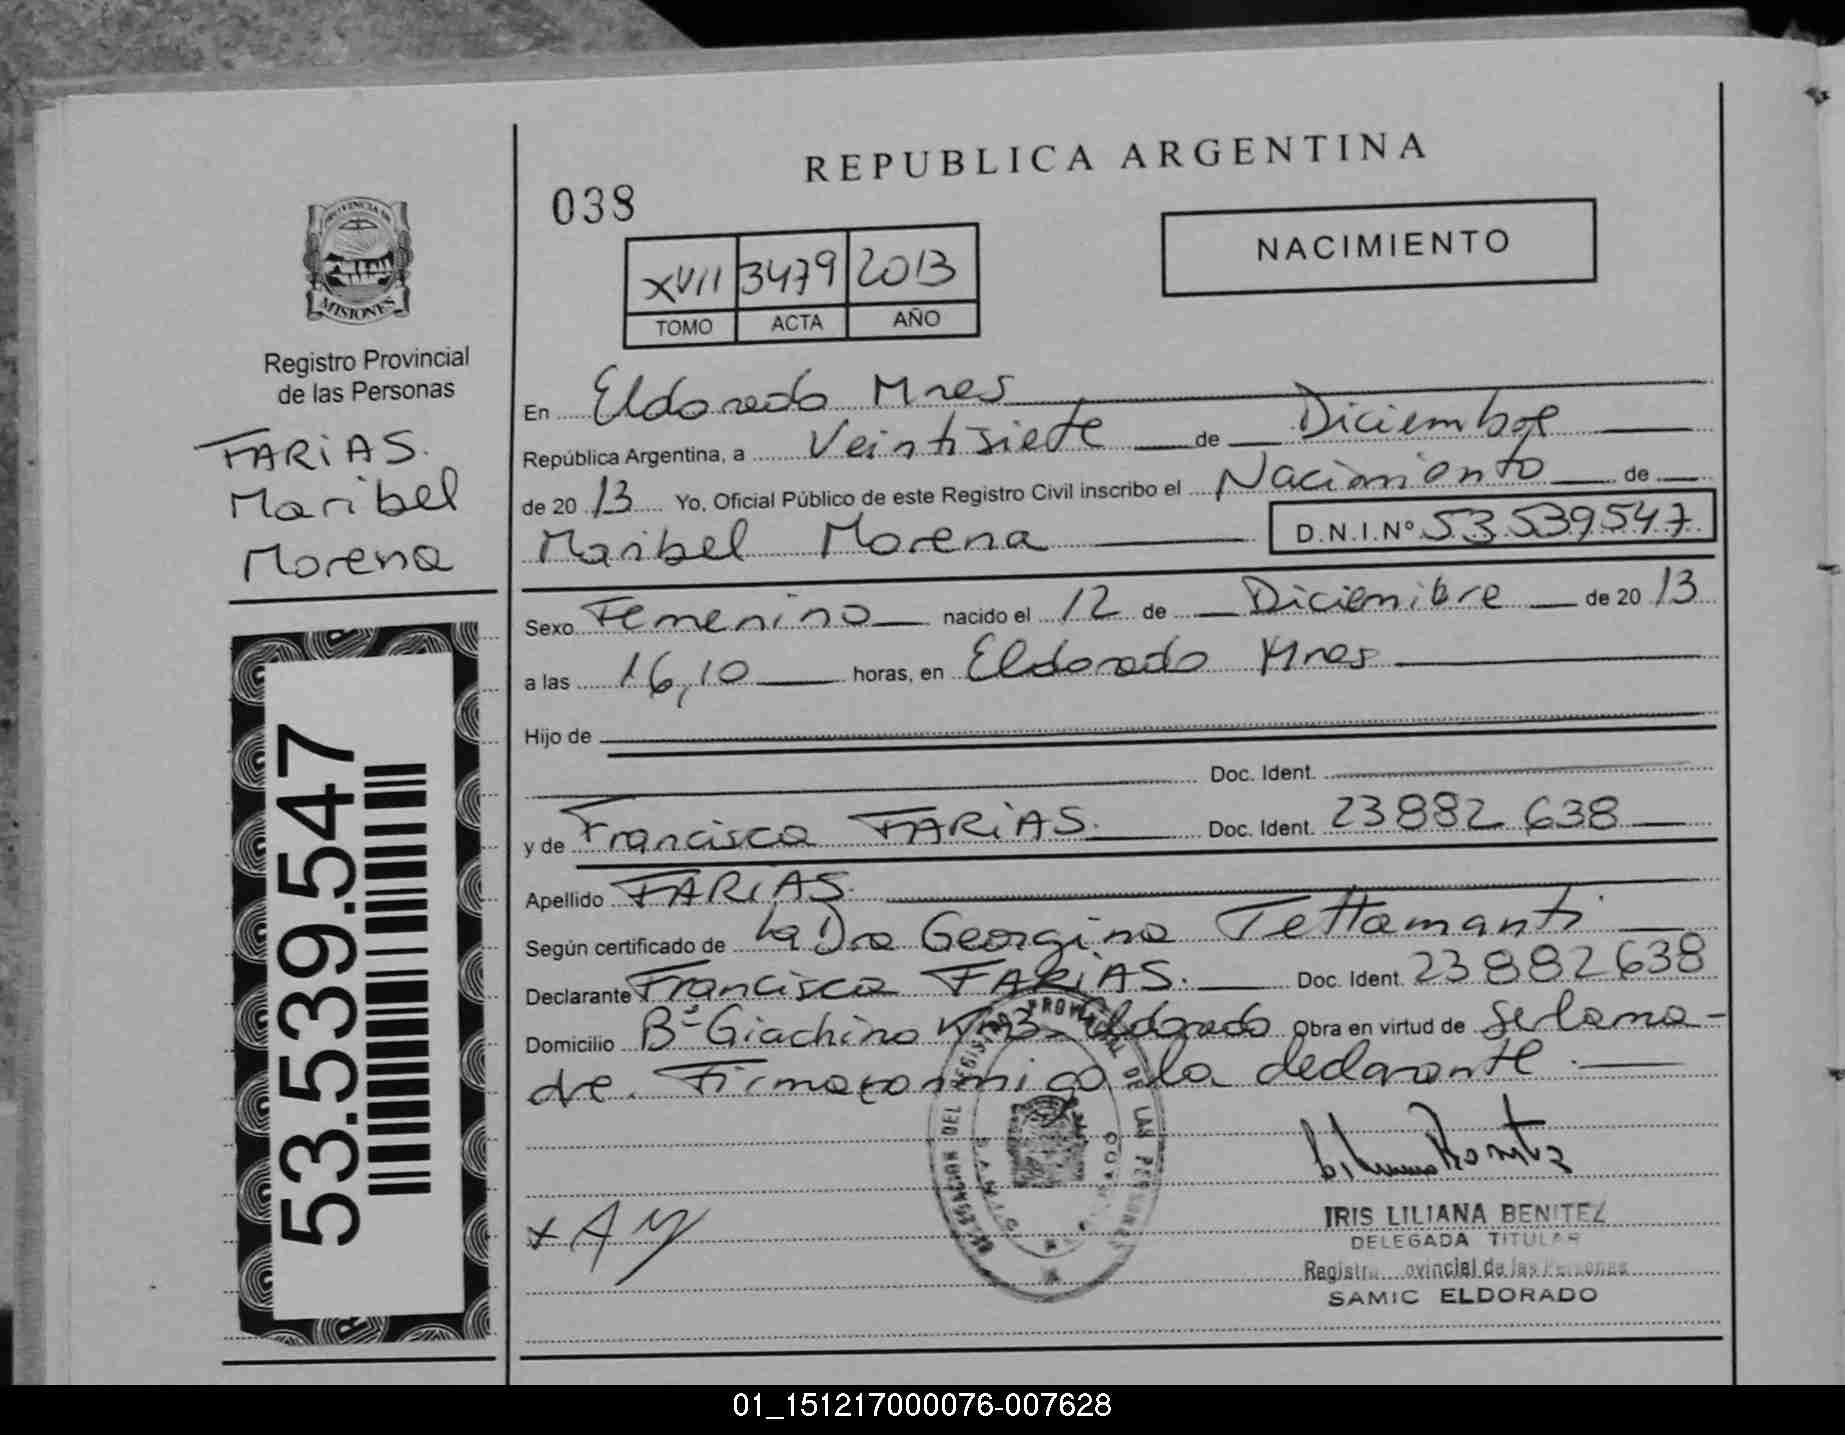 REPUBLICA ARGENTINA
038
NACIMIENTO
XVII 3479 2013
TOMO ACTA AÑO
PROVINCIA DE
MISIONES
Registro Provincial
de las Personas
FARIAS.
Maribel
Morena
53.539.547
En Eldorado Mnes
República Argentina, a Veintisiete de Diciembre
de 20 13 Yo, Oficial Público de este Registro Civil inscribo el Nacimiento de
Maribel Morena D.N.I.Nº 53.539.547
Sexo Femenino nacido el 12 de Diciembre de 20 13
a las 16,10 horas, en Eldorado Mnes
Hijo de
Doc. Ident.
y de Francisca FARIAS. Doc. Ident. 23882638
Apellido FARIAS.
Según certificado de La Dra Georgina Tettamanti
Declarante Francisca FARIAS. Doc. Ident. 23882638
Domicilio Bº Giachino Km 3 - Eldorado Obra en virtud de ser la ma-
dre. Firma conmigo la declarante.
DELEGACION DEL REGISTRO PROVINCIAL DE LAS PERSONAS
IRIS LILIANA BENITEZ
DELEGADA TITULAR
Registro Provincial de las Personas
SAMIC ELDORADO
01_151217000076-007628